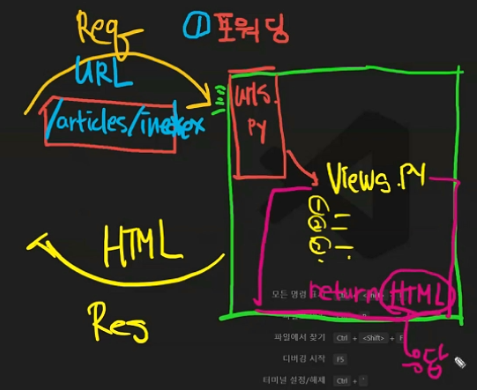 Req
① 포워딩
URL
/articles/index
urls.
py
views.py
①
②
③
HTML
Res
return HTML
응답
모든 명령 표시
파일에서 찾기 Ctrl + <Shift> + F
디버깅 시작 F5
터미널 설정/해제 Ctrl + `